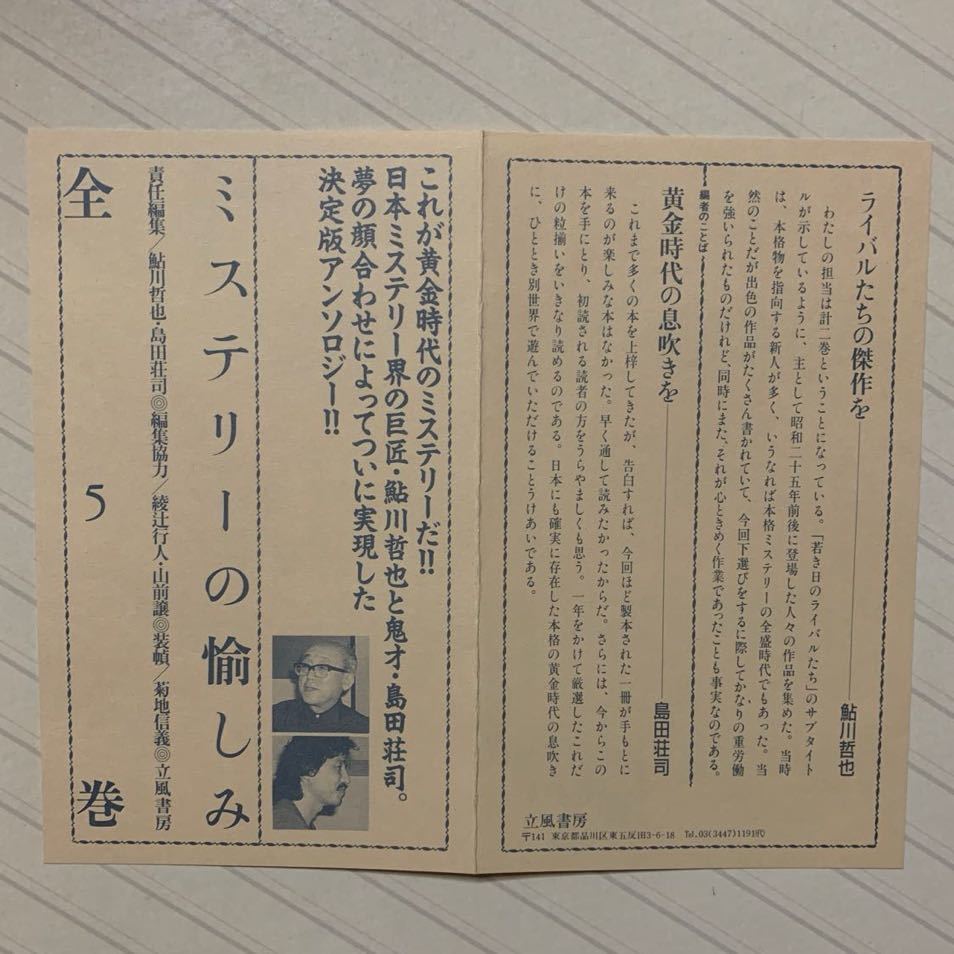 ライバルたちの傑作を
鮎川哲也
わたしの担当は計二巻ということになっている。「若き日のライバルたち」のサブタイト
ルが示しているように、主として昭和二十五年前後に登場した人々の作品を集めた。当時
は、本格物を指向する新人が多く、いうなれば本格ミステリーの全盛時代でもあった。当
然のことだが出色の作品がたくさん書かれていて、今回下選びをするに際してかなりの重労働
を強いられたものだけれど、同時にまた、それが心ときめく作業であったことも事実なのである。
編者のことば
黄金時代の息吹きを
島田荘司
これまで多くの本を上梓してきたが、告白すれば、今回ほど製本された一冊が手もとに
来るのが楽しみな本はなかった。早く通して読みたかったからだ。さらには、今からこの
本を手にとり、初読される読者の方をうらやましくも思う。一年をかけて厳選したこれだ
けの粒揃いをいきなり読めるのである。日本にも確実に存在した本格の黄金時代の息吹き
に、ひととき別世界で遊んでいただけることうけあいである。
立風書房
〒141 東京都品川区東五反田3-6-18 Tel.03(3447)1191代
これが黄金時代のミステリーだ!!
日本ミステリー界の巨匠・鮎川哲也と鬼才・島田荘司。
夢の顔合わせによってついに実現した
決定版アンソロジー!!
ミステリーの愉しみ
責任編集/鮎川哲也・島田荘司◎編集協力/綾辻行人・山前譲◎装幀/菊地信義◎立風書房
全5巻